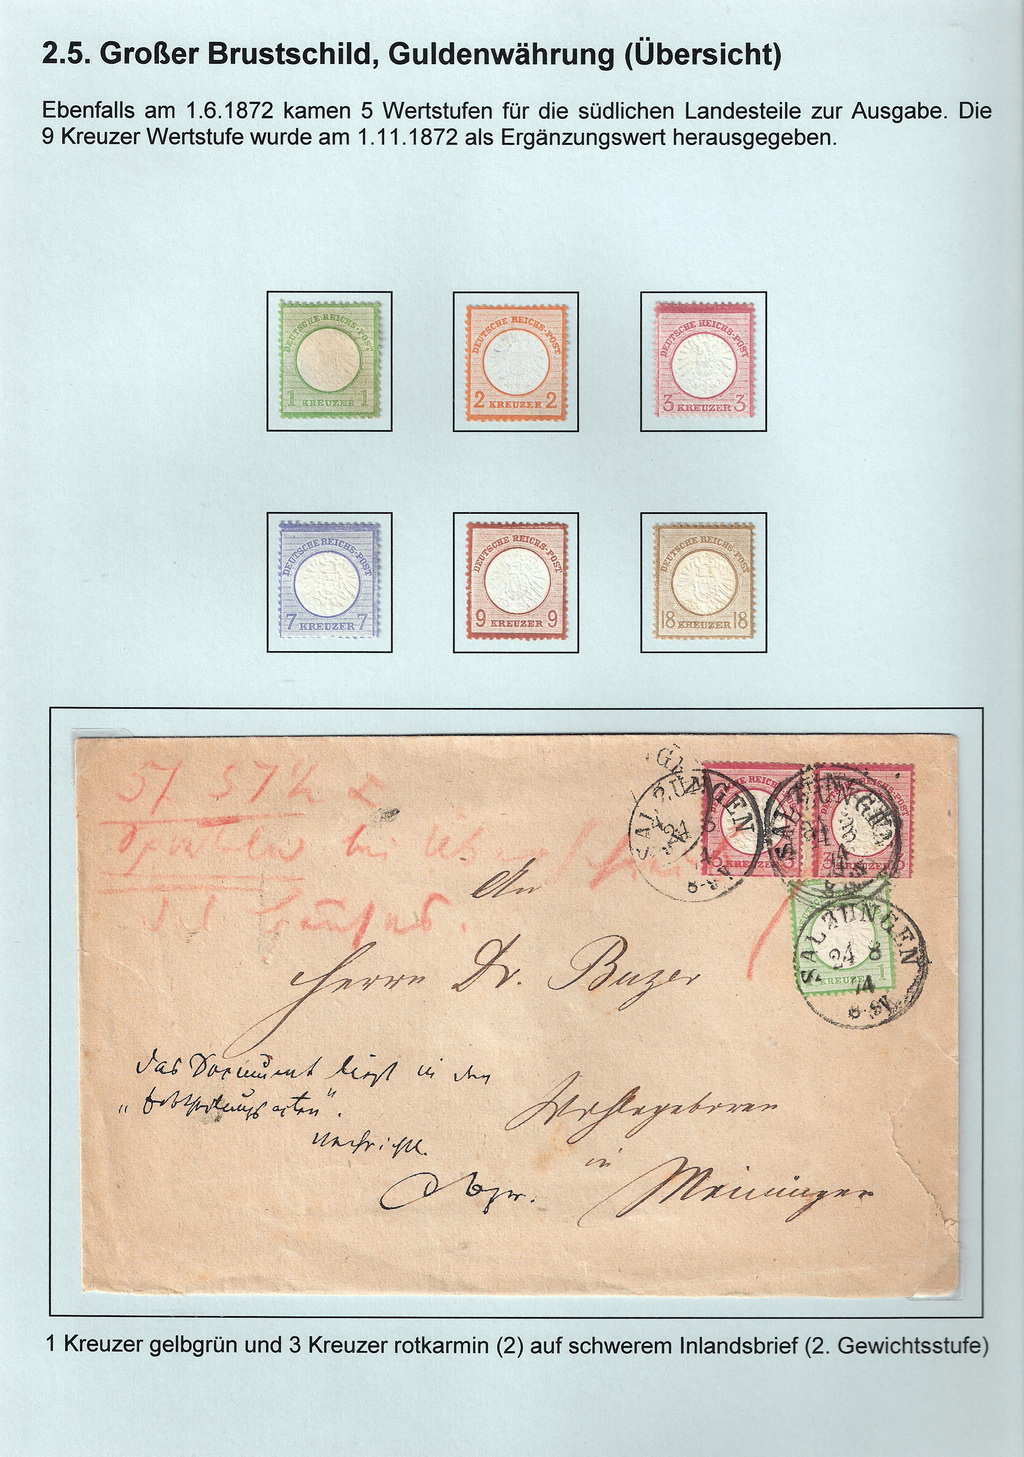 2.5. Großer Brustschild, Guldenwährung (Übersicht)
Ebenfalls am 1.6.1872 kamen 5 Wertstufen für die südlichen Landesteile zur Ausgabe. Die
9 Kreuzer Wertstufe wurde am 1.11.1872 als Ergänzungswert herausgegeben.
DEUTSCHE REICHS-POST
1 KREUZER 1
DEUTSCHE REICHS-POST
2 KREUZER 2
DEUTSCHE REICHS-POST
3 KREUZER 3
DEUTSCHE REICHS-POST
7 KREUZER 7
DEUTSCHE REICHS-POST
9 KREUZER 9
DEUTSCHE REICHS-POST
18 KREUZER 18
SALZUNGEN
SALZUNGEN
3 KREUZER 3
SALZUNGEN
24 8
74
KREUZER 1
An
Herrn Dr. Buzer
das Document liegt in den
Wohlgeboren
in Meiningen
1 Kreuzer gelbgrün und 3 Kreuzer rotkarmin (2) auf schwerem Inlandsbrief (2. Gewichtsstufe)